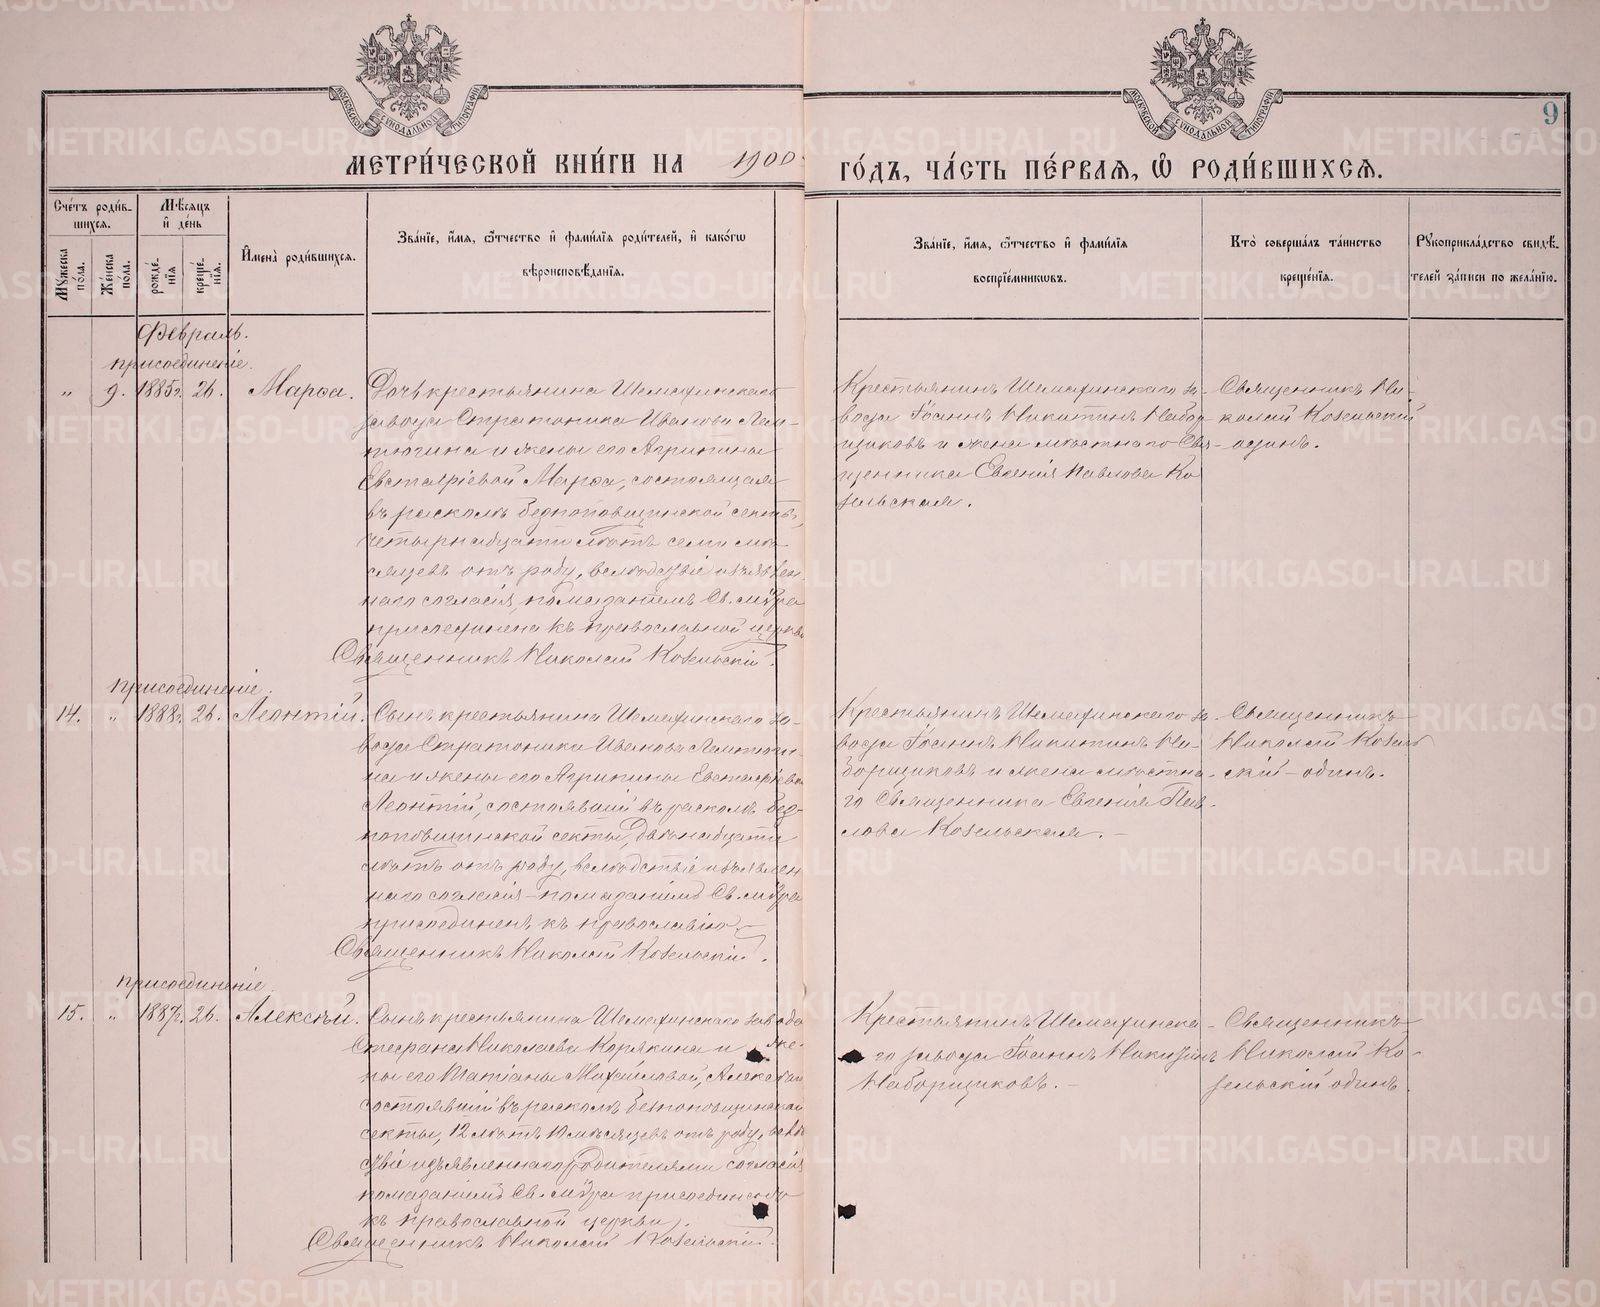 МЕТРИ́ЧЕСКОЙ КНИ́ГИ НА 1900 ГО́ДЪ, ЧА́СТЬ ПЕ́РВАЯ, Ѡ РОДИ́ВШИХСЯ.
9
МОСКОВСКОЙ СѴНОДАЛЬНОЙ ТИПОГРАФІИ
МОСКОВСКОЙ СѴНОДАЛЬНОЙ ТИПОГРАФІИ
Сче́тъ роди́в-
шихся.
Мꙋ́жеска по́ла.
Же́нска по́ла.
Мѣ́сяцъ
и҆ де́нь
рожде́-
нїя
креще́-
нїя.
И҆мена̀ роди́вшихся.
Зва́нїе, и҆́мя, ѻ҆́тчество и҆ фами́лїя роди́телей, и҆ како́гѡ
вѣроисповѣ́данїя.
Зва́нїе, и҆́мя, ѻ҆́тчество и҆ фами́лїя
воспрїе́мникѡвъ.
Кто̀ соверша́лъ та́инство
креще́нїя.
Рꙋкоприкла́дство свидѣ́-
телей за́писи по жела́нїю.
Февраль.
присоединеніе.
„ 9. 1885г. 26. Марѳа.
Дочь крестьянина Шемахинскаго
завода Стратоника Иванова Лап-
тюгина и жены его Агрипины
Евстафіевой Марѳа, состоящая
въ расколѣ безпоповщинской секты,
четырнадцати лѣтъ семи мѣ-
сяцевъ отъ роду, вслѣдствіе изъявлен-
наго согласія, помазаніемъ Св. мѵра
присоединена къ православной церкви
Священникъ Николай Козельскій.
Крестьянинъ Шемахинскаго за-
вода Іоаннъ Никитинъ Набор-
щиковъ и жена мѣстнаго Свя-
щенника Евгенія Павлова Ко-
зельская.
Священникъ Ни-
колай Козельскій
одинъ.
присоединеніе.
14. „ 1888г. 26. Леонтій.
Сынъ крестьянина Шемахинскаго за-
вода Стратоника Иванова Лаптюги-
на и жены его Агрипины Евстафіевой
Леонтій, состоявшій въ расколѣ без-
поповщинской секты, двѣнадцати
лѣтъ отъ роду, вслѣдствіе изъявлен-
наго согласія - помазаніемъ Св. мѵра
присоединенъ къ православію
Священникъ Николай Козельскій.
Крестьянинъ Шемахинскаго за-
вода Іоаннъ Никитинъ На-
борщиковъ и жена мѣстна-
го Священника Евгенія Пав-
лова Козельская. -
Священникъ
Николай Козель-
скій - одинъ.
присоединеніе.
15. „ 1887г. 26. Алексѣй.
Сынъ крестьянина Шемахинскаго завода
Стефана Николаева Корякина и же-
ны его Татіаны Михайловой, Алексѣй
состоявшій въ расколѣ безпоповщинской
секты, 12 лѣтъ 10 мѣсяцевъ отъ роду, вслѣд-
ствіе изъявленнаго родителями согласія
помазаніемъ Св. мѵра присоединенъ
къ православной церкви.
Священникъ Николай Козельскій.
Крестьянинъ Шемахинска-
го завода Іоаннъ Никитинъ
Наборщиковъ. -
Священникъ
Николай Ко-
зельскій одинъ.
METRIKI.GASO-URAL.RU